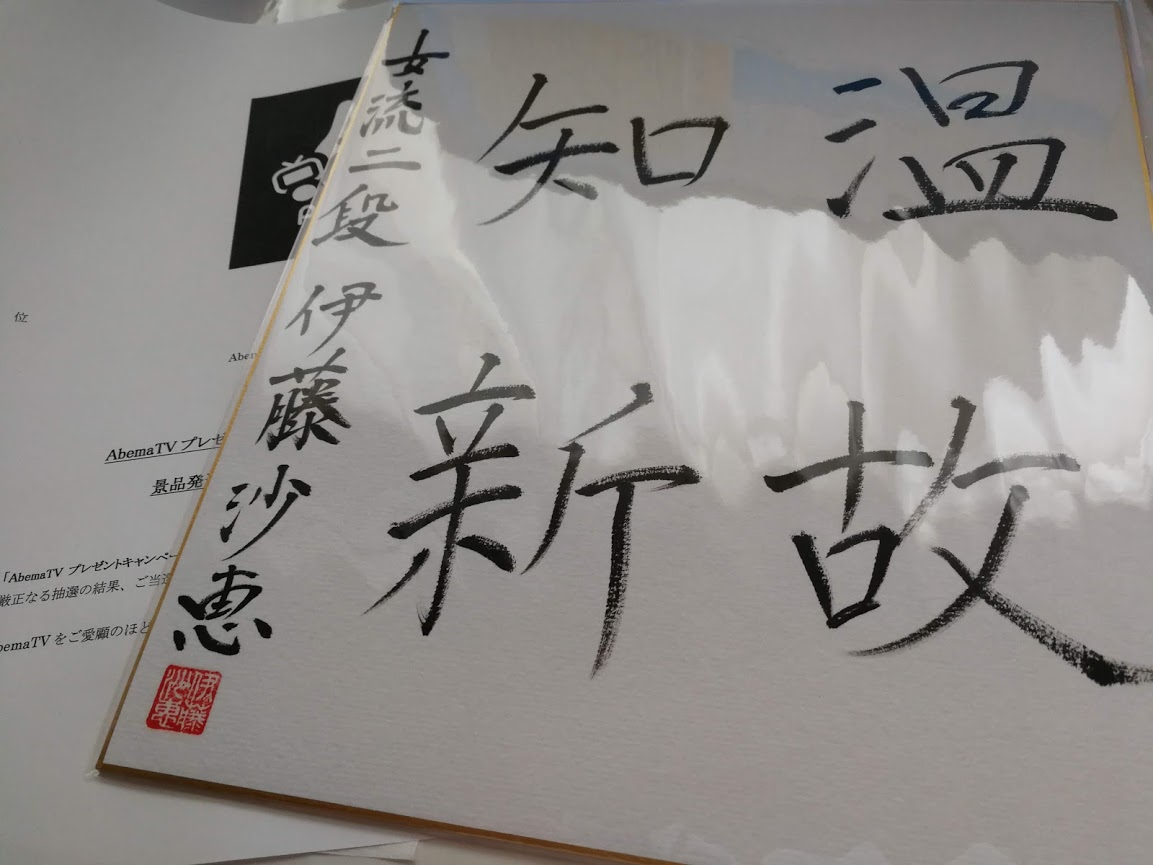 温故
知新
女流二段 伊藤沙恵
伊藤
沙恵
位
Abe
AbemaTV プレゼ
景品発
「AbemaTV プレゼントキャンペー
厳正なる抽選の結果、ご当選
bemaTV をご愛顧のほど